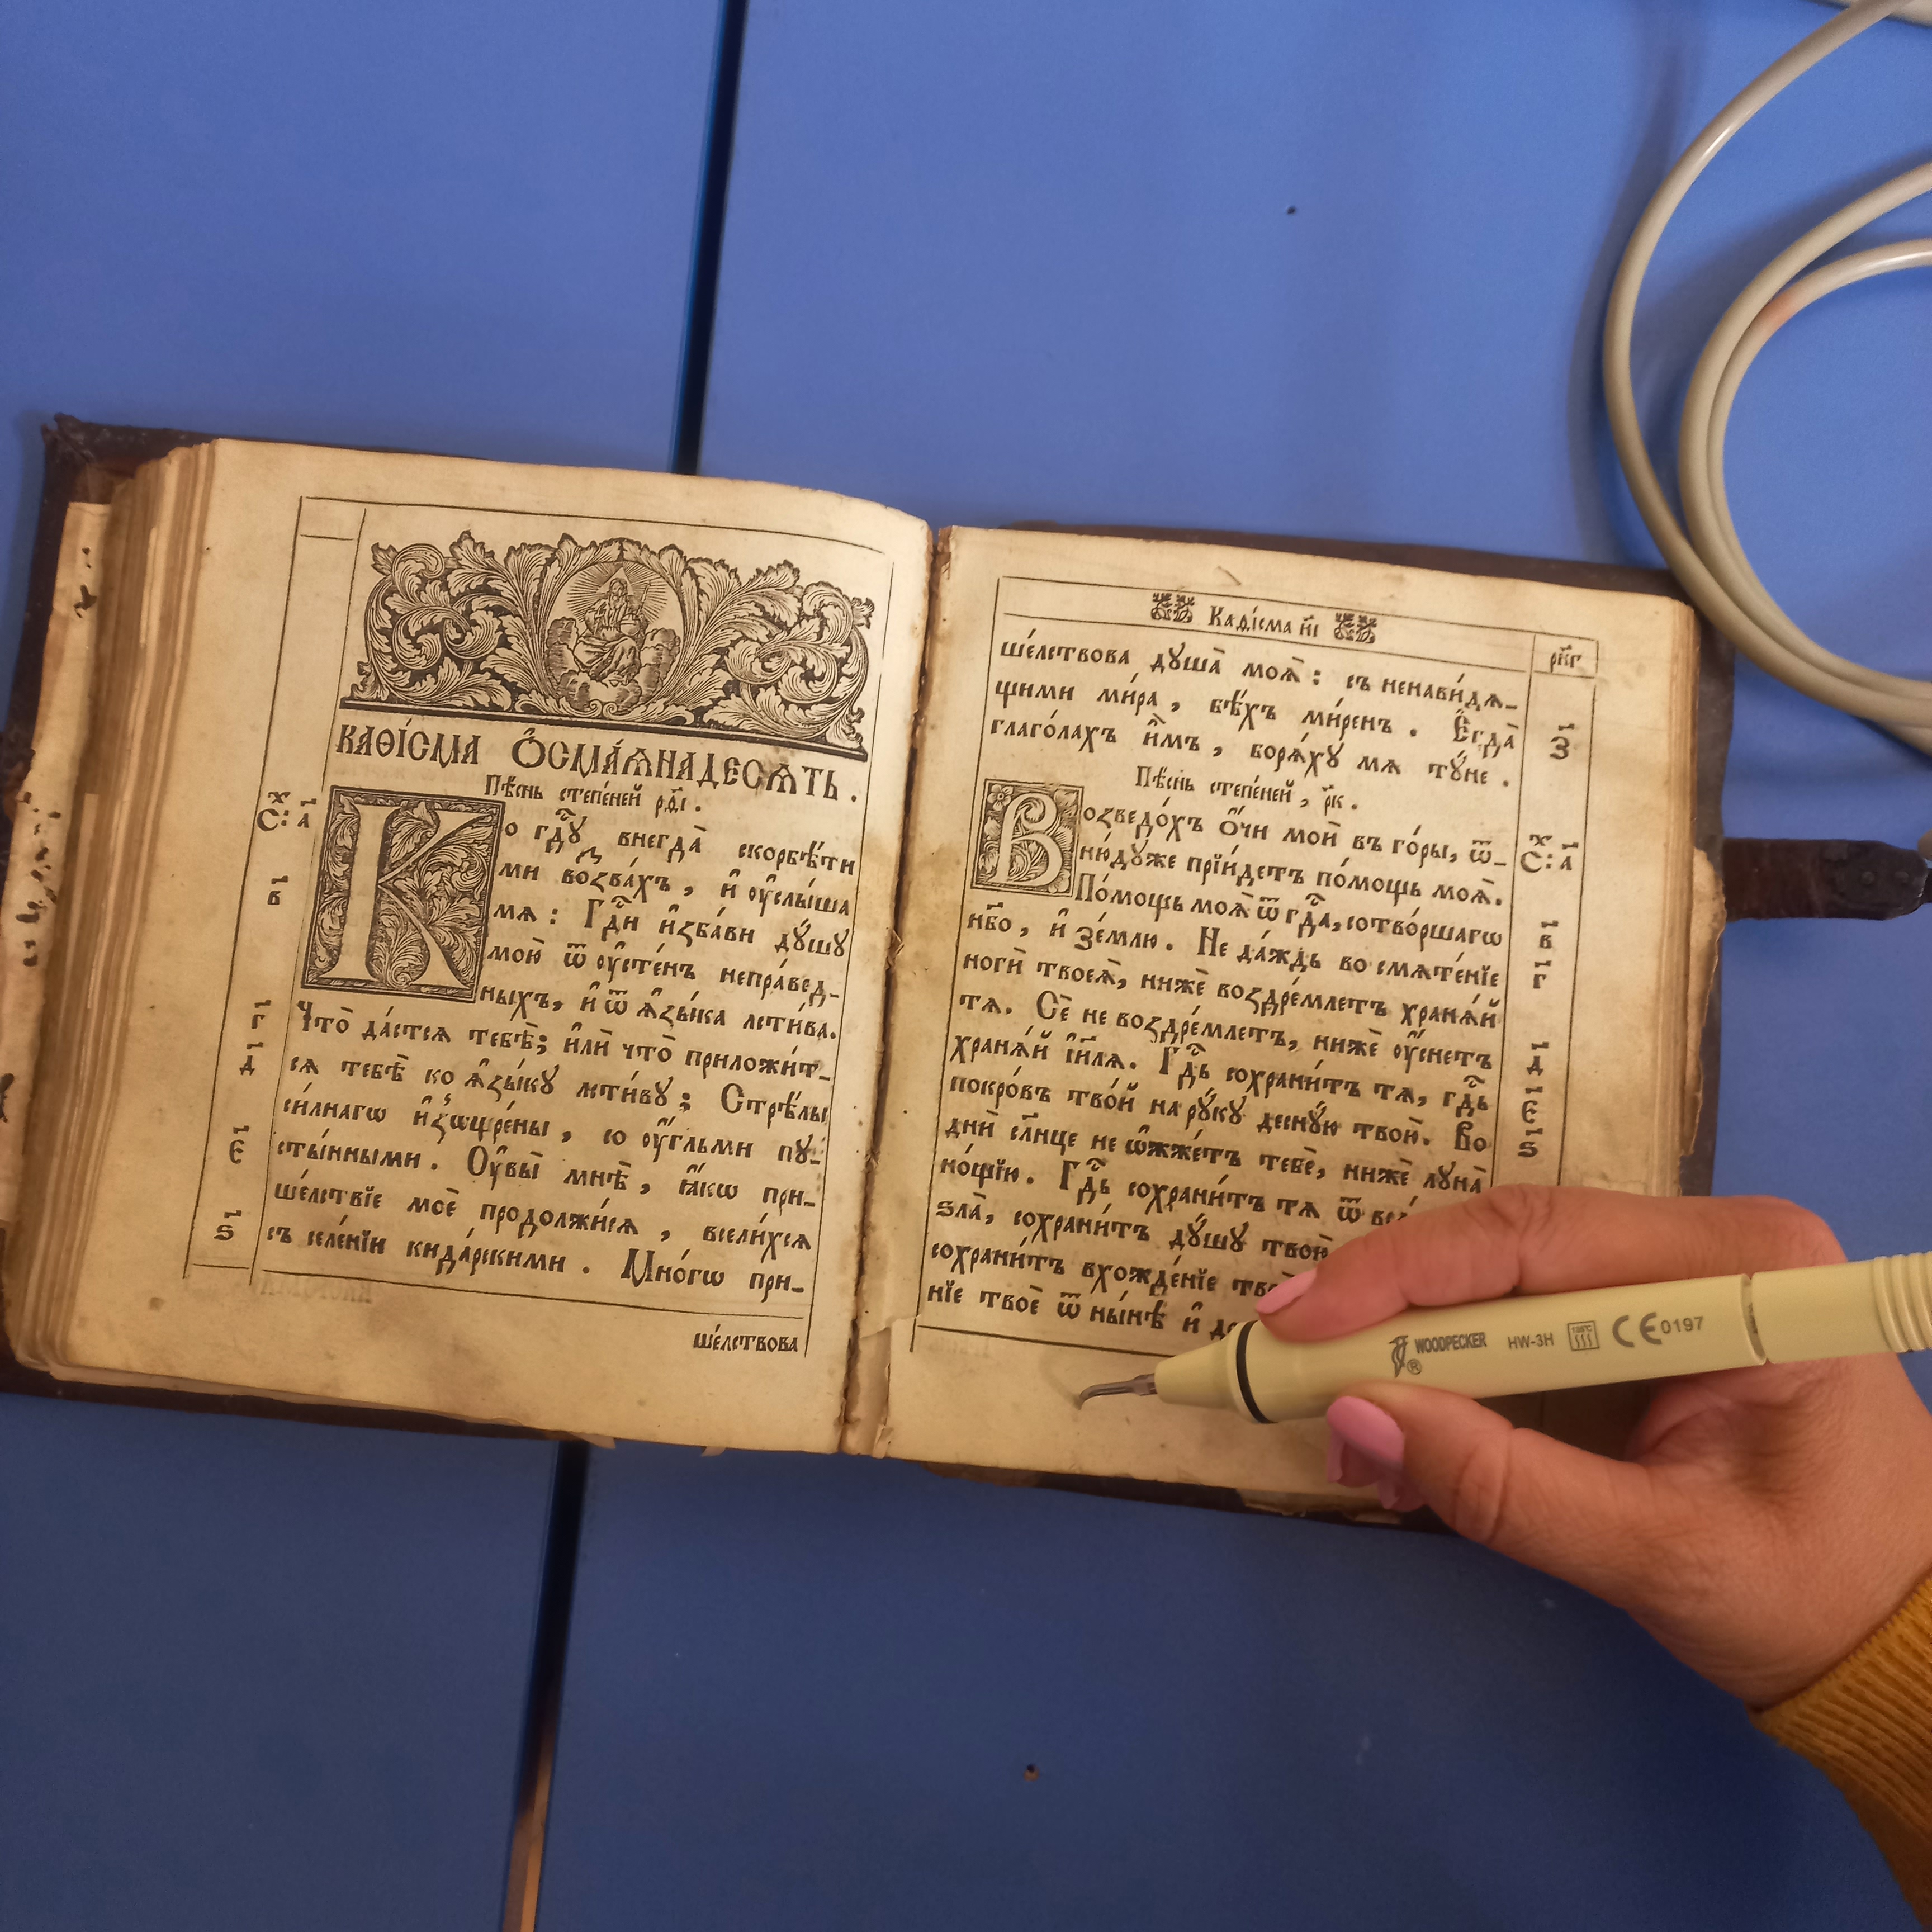 КАѲІ́СМА Ѻ҆СМА́ѦНАДЕСѦТЬ .
Пѣ́снь степе́ней р҃ѳі .
Х
С: а҃
Ко гдⷭ҇ꙋ внегда̀ скорбѣ́ти
ми воззва́хъ , и҆ оу҆слы́ша
в҃
мѧ : Гдⷭ҇и и҆зба́ви дꙋ́шꙋ
мою̀ ѿ оу҆сте́нъ непра́вед_
ныхъ, и҆ ѿ ѧ҆зы́ка лсти́ва.
г҃
Что̀ да́стсѧ тебѣ̀; и҆лѝ что̀ приложи́т_
д҃
сѧ тебѣ̀ ко ѧ҆зы́кꙋ лсти́вꙋ ; Стрѣ́лы
си́лнагѡ и҆зѡщре́ны , со оу҆́гльми пꙋ_
є҃
сты́нными . Оу҆вы̀ мнѣ̀ , ꙗ҆́кѡ при_
ше́лствїе моѐ продолжи́сѧ , всели́хсѧ
ѕ҃
съ селе́нїи кида́рскими . Мно́гѡ при_
ше́лствова
Каѳі́сма и҃і
рк҃г
ше́лствова дꙋша̀ моѧ̀ : съ ненави́дѧ_
щими ми́ра , бѣ́хъ ми́ренъ . Є҆гда̀
з҃
глаго́лахъ и҆̀мъ , борѧ́хꙋ мѧ тꙋ́не .
Пѣ́снь степе́ней , р҃к .
Возведо́хъ ѻ҆́чи моѝ въ го́ры, ѿ_
Х
С: а҃
ню́дꙋже прїи́детъ по́мощь моѧ̀.
По́мощь моѧ̀ ѿ гдⷭ҇а, сотво́ршагѡ
в҃
нб҃о , и҆ зе́млю . Не да́ждь во смѧте́нїе
г҃
ногѝ твоеѧ̀, нижѐ воздре́млетъ хранѧ́й
тѧ. Сѐ не воздре́млетъ, нижѐ оу҆́снетъ
д҃
хранѧ́й і҆и҃лѧ. Гдⷭ҇ь сохрани́тъ тѧ, гдⷭ҇ь
є҃
покро́въ тво́й на рꙋ́кꙋ деснꙋ́ю твою̀. Во
ѕ҃
днѝ сл҃нце не ѡ҆жже́тъ тебѐ, нижѐ лꙋна̀
но́щїю. Гдⷭ҇ь сохрани́тъ тѧ ѿ
ѕла̀, сохрани́тъ дꙋ́шꙋ твою̀
сохрани́тъ вхожде́нїе
нїе твоѐ ѿ ны́нѣ и҆
WOODPECKER HW-3H 135°C CE0197
®